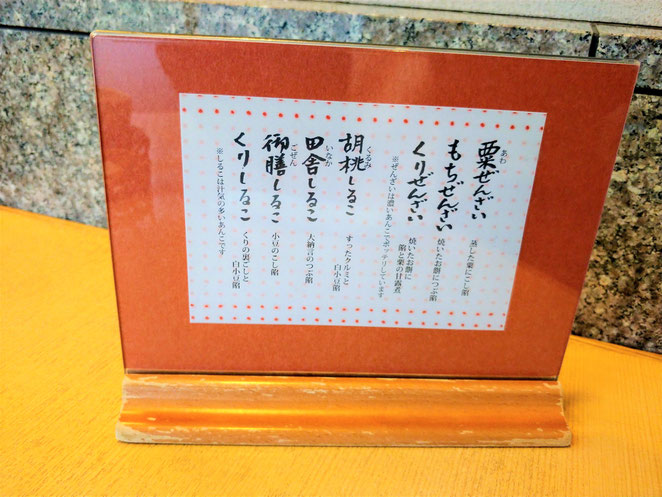 粟ぜんざい
あわ
蒸した粟にこし餡
もちぜんざい
焼いたお餅につぶ餡
くりぜんざい
焼いたお餅に
餡と栗の甘露煮
※ぜんざいは濃いあんこでボッテリしています
胡桃しるこ
くるみ
すったクルミと
白小豆餡
田舎しるこ
いなか
大納言のつぶ餡
御膳しるこ
ごぜん
小豆のこし餡
くりしるこ
くりの裏ごしと、
白小豆餡
※しるこは汁気の多いあんこです